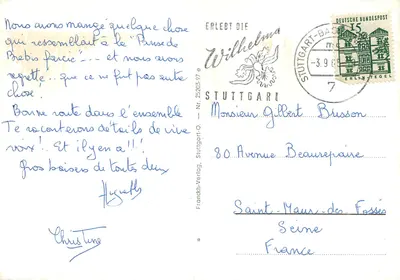 Nous avons mangé quelque chose
qui ressemblait à la "Panse de
Brebis farcie"... et nous avons
regretté que ce ne fut pas autre
chose!
Bonne route dans l'ensemble
Te raconterons détails de vive
voix! Et il y en a!!!
Gros baisers de toutes deux
Huguette
Christine
Franckh-Verlag, Stuttgart-O — Nr.
ERLEBT DIE
Wilhelma
STUTTGART
STUTTGART-BA
-3.9.6
7
15
DEUTSCHE BUNDESPOST
Monsieur Gilbert Brisson
80 Avenue Beaurepaire
Saint-Maur-des-Fossés
Seine
France